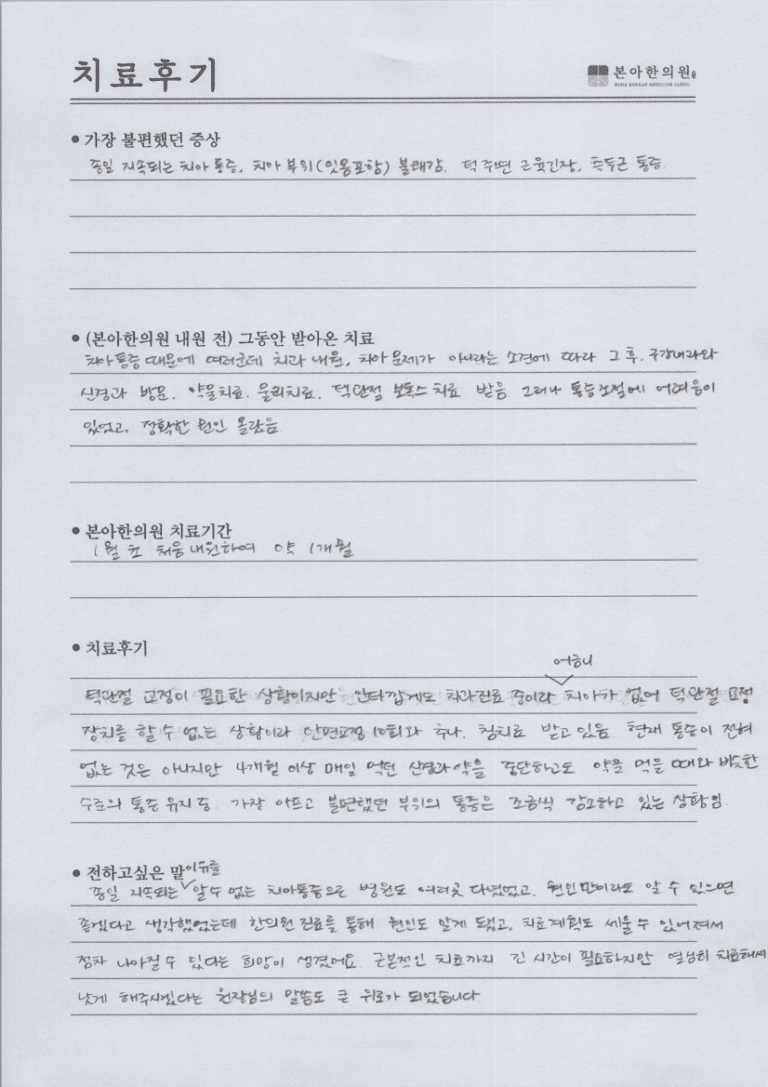 치료후기
본아한의원
BONA KOREAN MEDICINE CLINIC
● 가장 불편했던 증상
종일 지속되는 치아 통증, 치아 부위(잇몸포함) 불쾌감. 턱 주변 근육긴장, 측두근 통증.
● (본아한의원 내원 전) 그동안 받아온 치료
치아통증 때문에 여러군데 치과 내원, 치아 문제가 아니라는 소견에 따라 그 후, 구강내과와
신경과 방문. 약물치료. 물리치료. 턱관절 보톡스치료 받음 그러나 통증조절에 어려움이
있었고, 정확한 원인 몰랐음
● 본아한의원 치료기간
1월 초 처음 내원하여 약 1개월
● 치료후기
어금니
턱관절 교정이 필요한 상황이지만 안타깝게도 치과진료 중이라 치아가 없어 턱관절 교정
장치를 할 수 없는 상황이라 단편교정 10회와 추나, 침치료 받고 있음 현재 통증이 전혀
없는 것은 아니지만 4개월 이상 매일 먹던 신경과약을 중단하고도 약을 먹을 때와 비슷한
수준의 통증 유지 중. 가장 아프고 불편했던 부위의 통증은 조금씩 감소하고 있는 상황임.
● 전하고싶은 말
이유를
종일 지속되는 알 수 없는 치아통증으로 병원도 여러곳 다녔었고, 원인만이라도 알 수 있으면
좋겠다고 생각했었는데 한의원 진료를 통해 원인도 알게 됐고, 치료계획도 세울 수 있어져서
점차 나아질 수 있다는 희망이 생겼어요 근본적인 치료까지 긴 시간이 필요하지만 열심히 치료해서
낫게 해주시겠다는 원장님의 말씀도 큰 위로가 되었습니다.